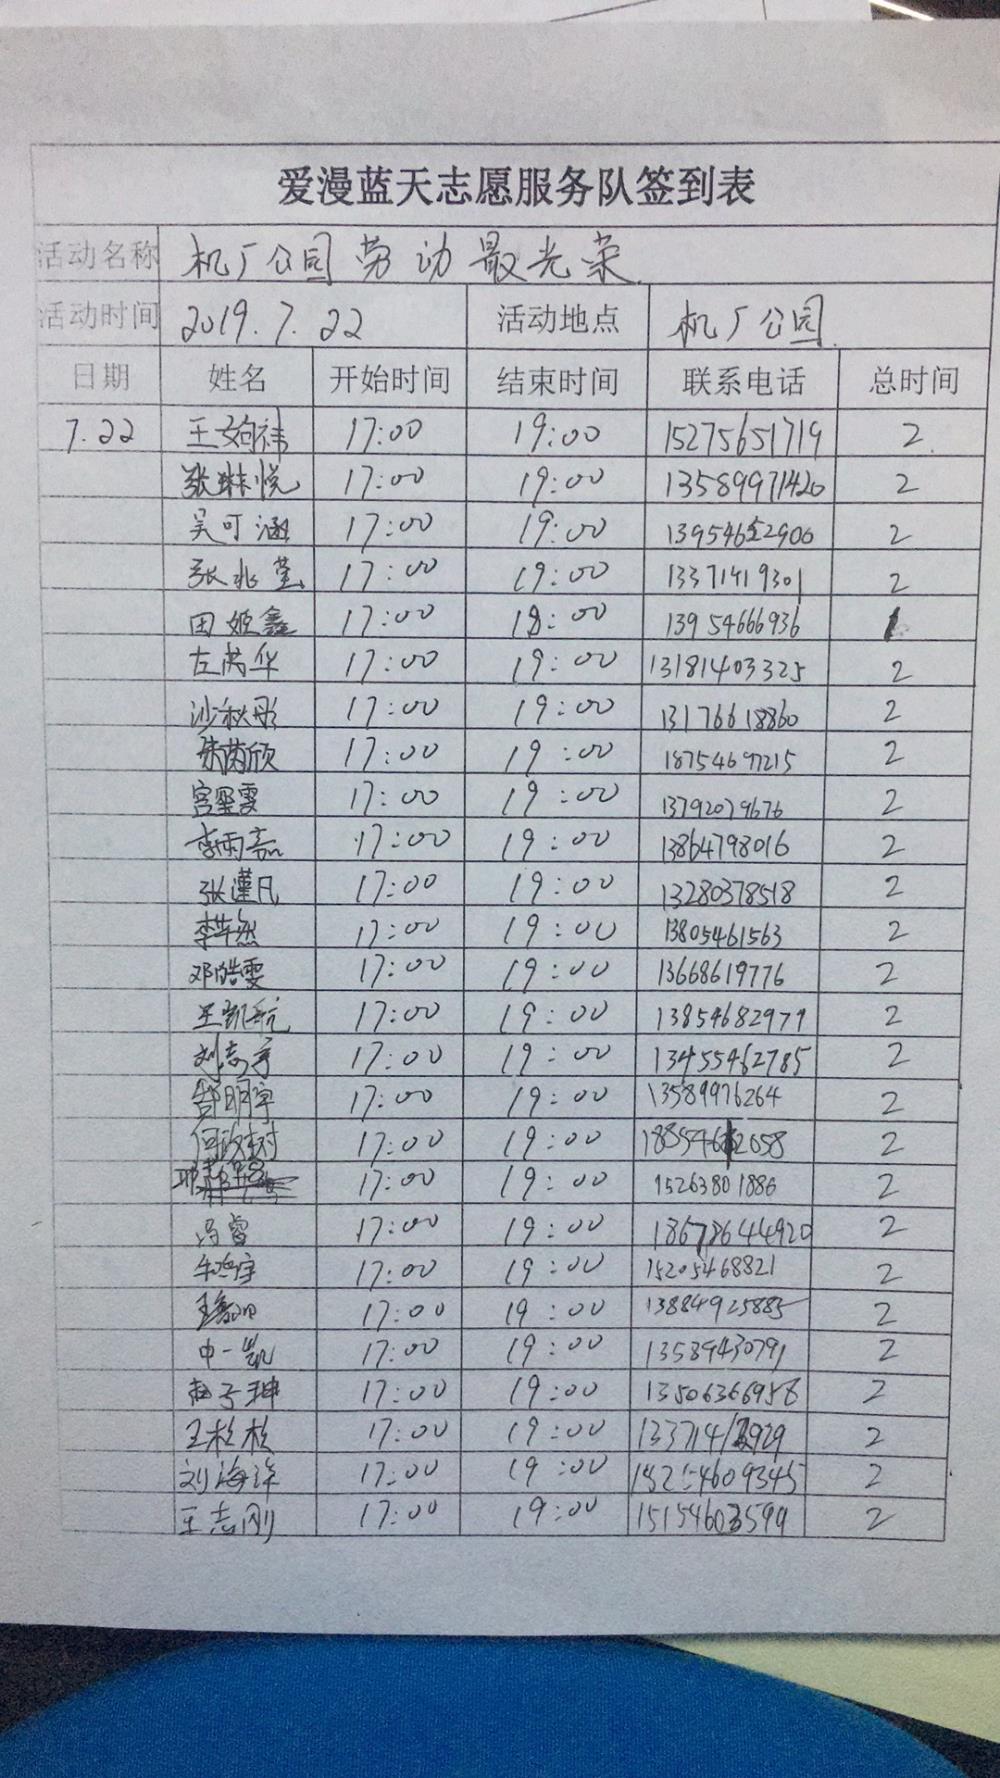 爱漫蓝天志愿服务队签到表
活动名称 机厂公园劳动最光荣
活动时间 2019.7.22 活动地点 机厂公园
日期 姓名 开始时间 结束时间 联系电话 总时间
7.22 17:00 19:00 15275651719 2
张琳悦 17:00 19:00 13589971420 2
吴可涵 17:00 19:00 13954652906 2
张兆莹 17:00 19:00 13371419301 2
田姬鑫 17:00 18:00 13954666936 1
左芮华 17:00 19:00 13181403325 2
沙秋彤 17:00 19:00 13176618860 2
朱芮欣 17:00 19:00 18754697215 2
宫翌雯 17:00 19:00 13792079676 2
李雨嘉 17:00 19:00 13864798016 2
张谨凡 17:00 19:00 13280378518 2
李华然 17:00 19:00 13805461563 2
邓皓雯 17:00 19:00 13668619776 2
王凯航 17:00 19:00 13854682979 2
刘志宇 17:00 19:00 13455462785 2
17:00 19:00 13589976264 2
何政树 17:00 19:00 2
17:00 19:00 15263801886 2
冯睿 17:00 19:00 18678644920 2
牛鸿宇 17:00 19:00 15205468821 2
17:00 19:00 13884925885 2
申一凯 17:00 19:00 13589430791 2
赵子珅 17:00 19:00 13506366958 2
王松松 17:00 19:00 2
刘海洋 17:00 19:00 2
王志刚 17:00 19:00 15154603599 2